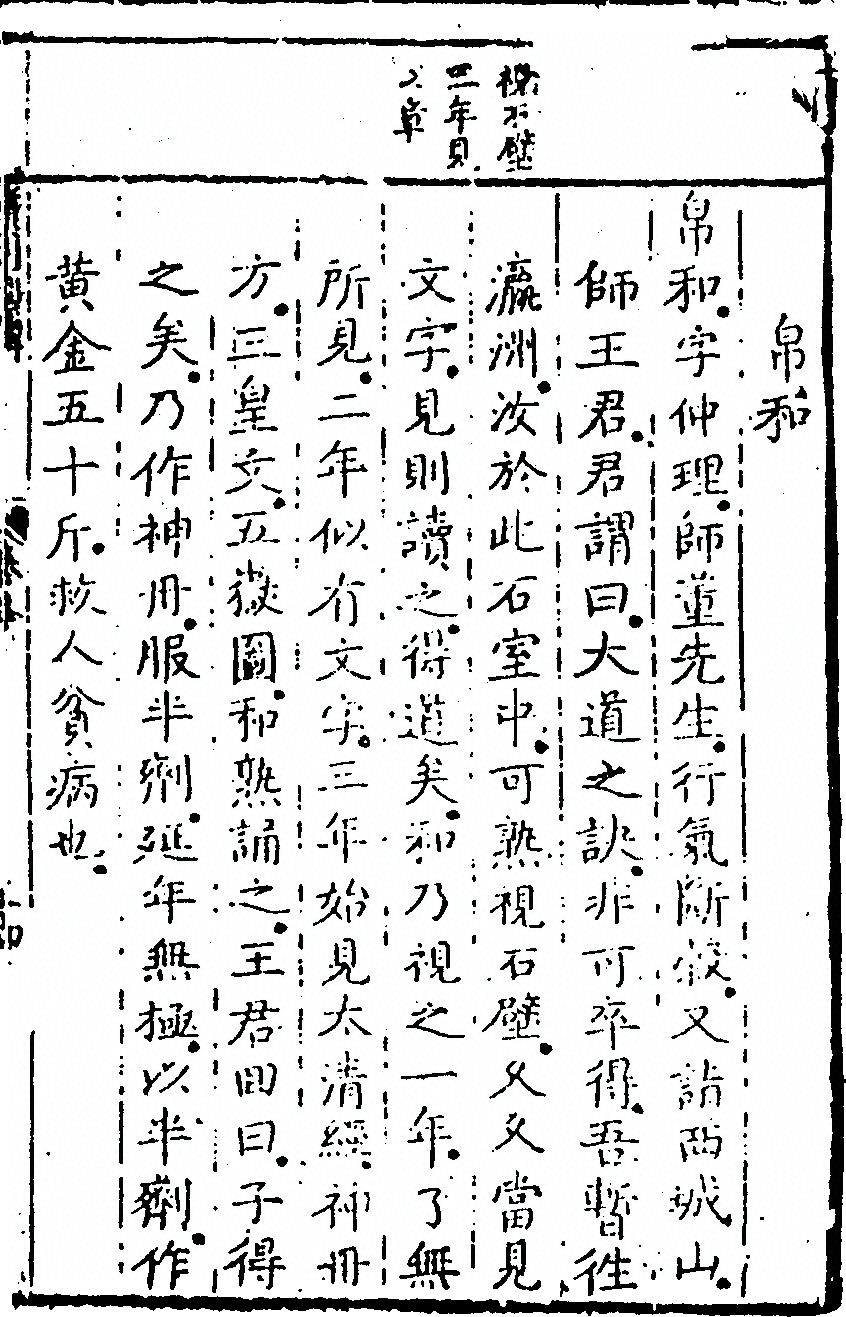 視石壁
三年見
文章
帛和
帛和字仲理師董先生行氣斷穀又詣西城山
師王君君謂曰大道之訣非可卒得吾暫往
瀛洲汝於此石室中可熟視石壁久久當見
文字見則讀之得道矣和乃視之一年了無
所見二年似有文字三年始見太清經神丹
方三皇文五嶽圖和熟誦之王君回曰子得
之矣乃作神丹服半劑延年無極以半劑作
黃金五十斤救人貧病也